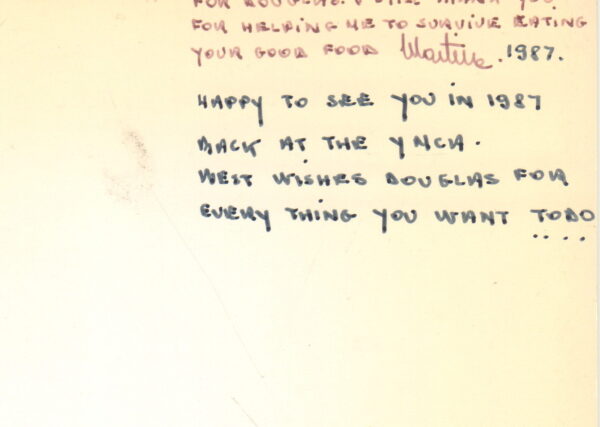 FOR DOUGLAS. I STILL THANK YOU
FOR HELPING ME TO SURVIVE EATING
YOUR GOOD FOOD Martine. 1987.
HAPPY TO SEE YOU IN 1987
BACK AT THE YMCA.
BEST WISHES DOUGLAS FOR
EVERY THING YOU WANT TODO
....